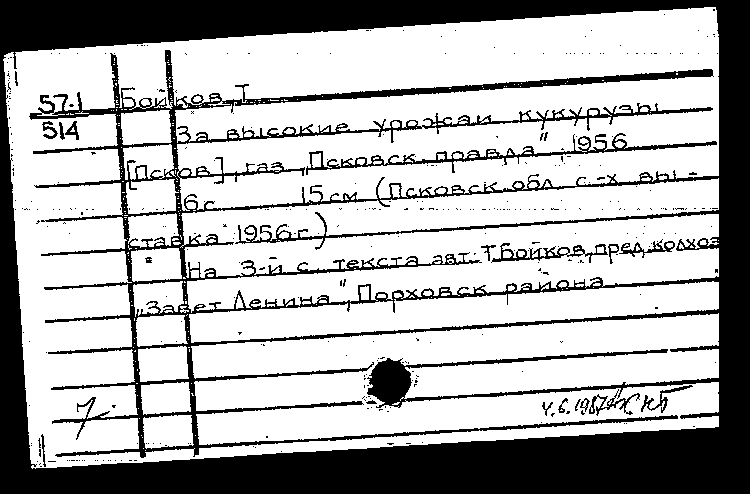 57-1 Бойков, Т.
514 За высокие урожаи кукурузы
[Псков], газ „Псковск. правда“, 1956
6с 15 см (Псковск. обл. с.-х. вы-
ставка 1956 г.)
На 3-й с. текста авт.: Т. Бойков, пред. колхоза
„Завет Ленина“, Порховск. района
4.6.1987